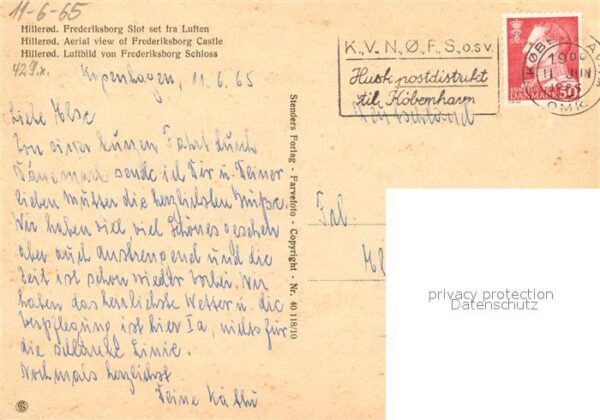 11-6-65
Hillerød. Frederiksborg Slot set fra Luften
Hillerød. Aerial view of Frederiksborg Castle
Hillerød. Luftbild von Frederiksborg Schloss
429.x.
Kopenhagen, 11.6.65
Liebe Else
Von einer kurzen Fahrt durch
Dänemark sende ich Dir u. Deiner
lieben Mutter die herzlichsten Grüße.
Wir haben viel viel Schönes gesehen
aber auch anstrengend und die
Zeit ist schon wieder vorbei. Wir
haben das herrlichste Wetter u. die
Verpflegung ist hier Ia, nichts für
die schlanke Linie.
Nochmals herzlichst
Deine Käthi
Stenders Forlag - Farvefoto - Copyright - Nr. 40 118/10
K.V.N.Ø.F.S.o.s.v.
Husk postdistrikt
til København
Deutschland
KØBENHAVN
1900
11 JUN
OMK.
DANMARK 50
Frl.
privacy protection
Datenschutz